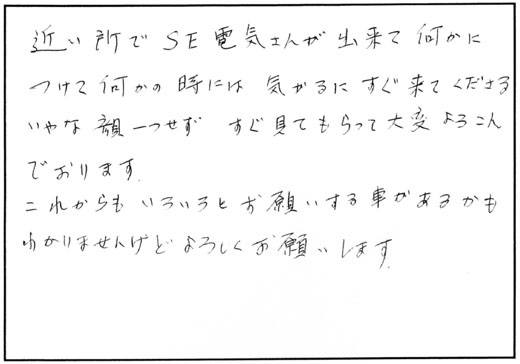 近い所でSE電気さんが出来て何かに
つけて何かの時には 気がるに すぐ来てくださる
いやな顔一つせず すぐ見てもらって大変よろこん
でおります。
これからも いろいろとお願いする事があるかも
わかりませんけど よろしくお願いします。